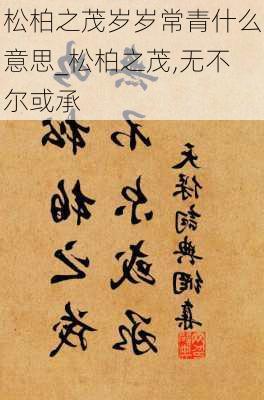 松柏之茂岁岁常青什么
意思_松柏之茂,无不
尔或承
松柏之茂
不尔或承
天保詞典網集